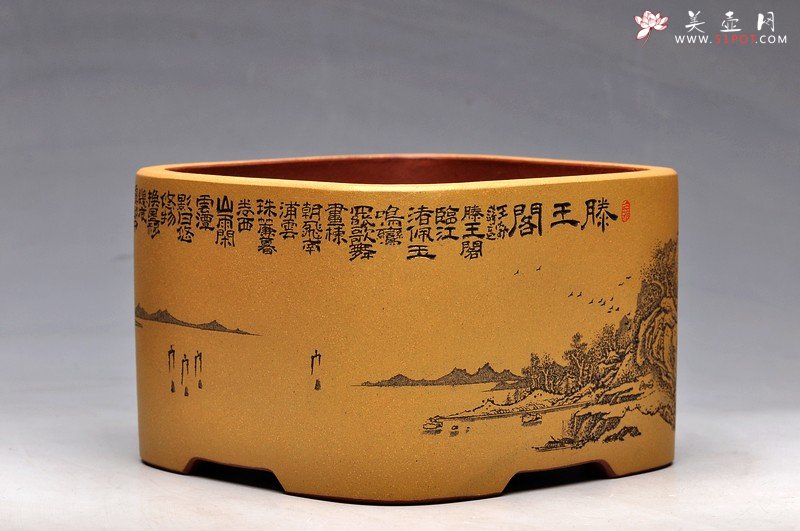 美壺网
WWW.51POT.COM
滕王閣
滕王閣
臨江
渚佩玉
鳴鸞
罷歌舞
畫棟
朝飛南
浦雲
珠簾暮
卷西
山雨閑
雲潭
影日悠
悠物
換星